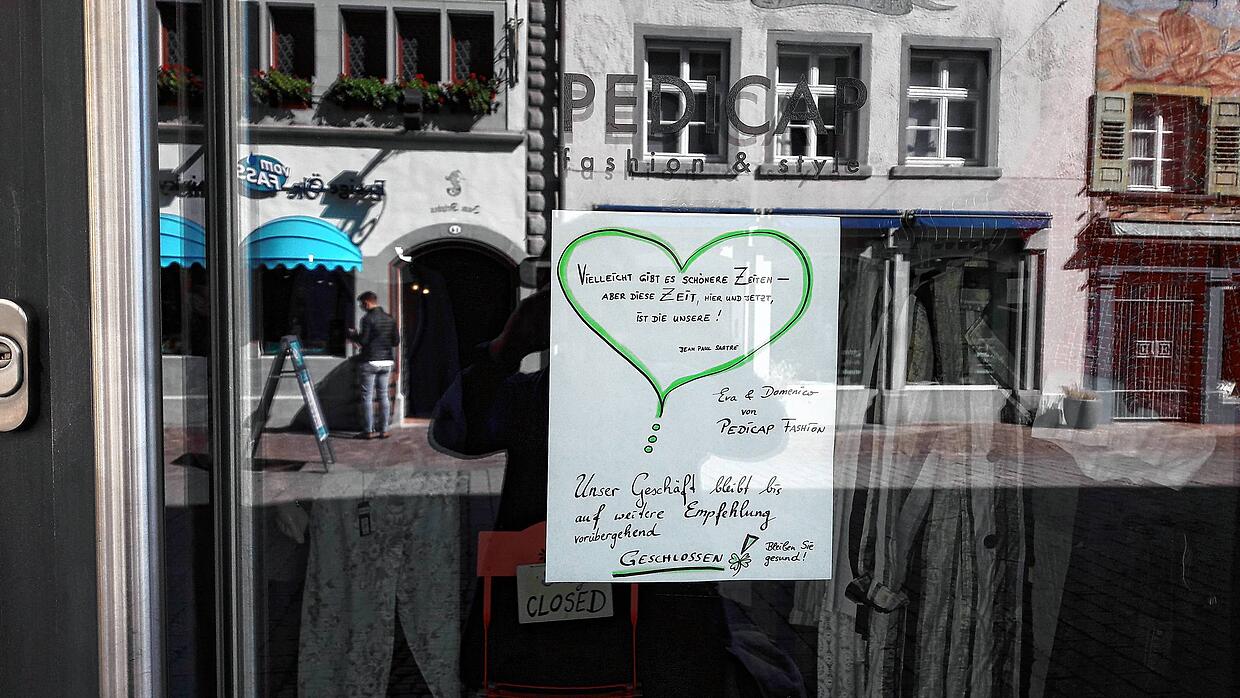 PEDICAP
fashion & style
vom
FASS
VIELLEICHT GIBT ES SCHÖNERE ZEITEN –
ABER DIESE ZEIT, HIER UND JETZT,
IST DIE UNSERE !
JEAN PAUL SARTRE
Eva & Domenico
von
PEDICAP FASHION
Unser Geschäft bleibt bis
auf weitere Empfehlung
vorübergehend
GESCHLOSSEN
Bleiben Sie
gesund!
CLOSED